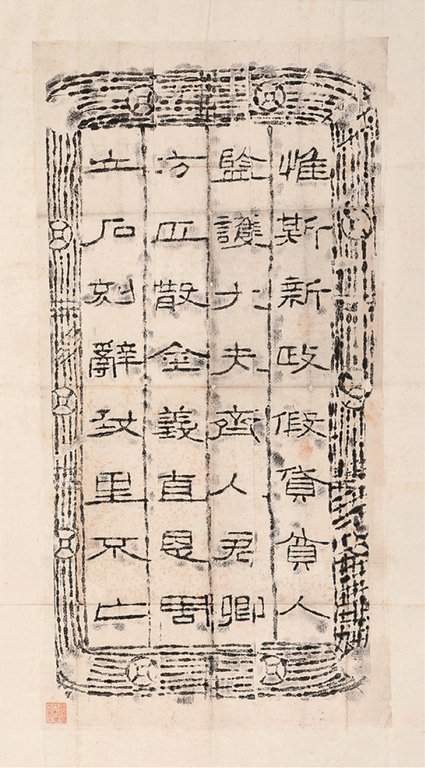 惟斯新政假貸貧人
監護大夫齊人卿
方散金義直恩周
立石刻辭里不亡